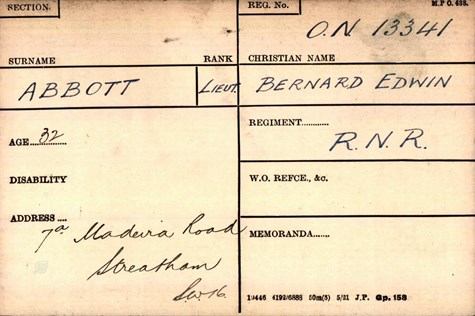 SECTION
REG. No.
M.P O. 488.
O.N 13341
SURNAME
RANK
CHRISTIAN NAME
ABBOTT
LIEUT.
BERNARD EDWIN
AGE 32
REGIMENT
R.N.R.
DISABILITY
W.O. REFCE., &c.
ADDRESS
7a Madeira Road
Streatham
S.W.16.
MEMORANDA
19446 4192/6888 50m(5) 5/21 J.P. Gp. 158